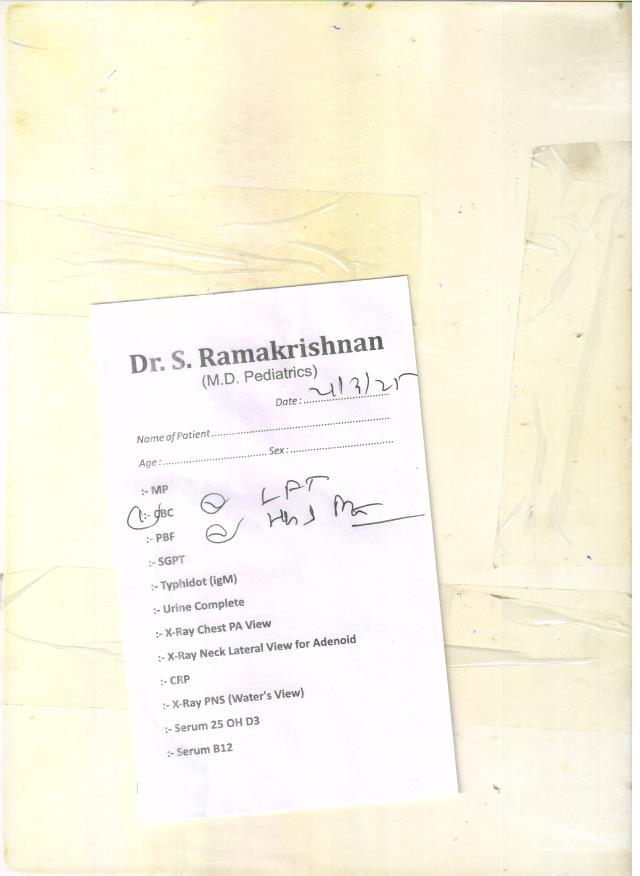 Dr. S. Ramakrishnan
(M.D. Pediatrics)
Date : 21/3/25
Name of Patient
Age : Sex :
:- MP
:- CBC LFT
:- PBF
:- SGPT
:- Typhidot (igM)
:- Urine Complete
:- X-Ray Chest PA View
:- X-Ray Neck Lateral View for Adenoid
:- CRP
:- X-Ray PNS (Water's View)
:- Serum 25 OH D3
:- Serum B12